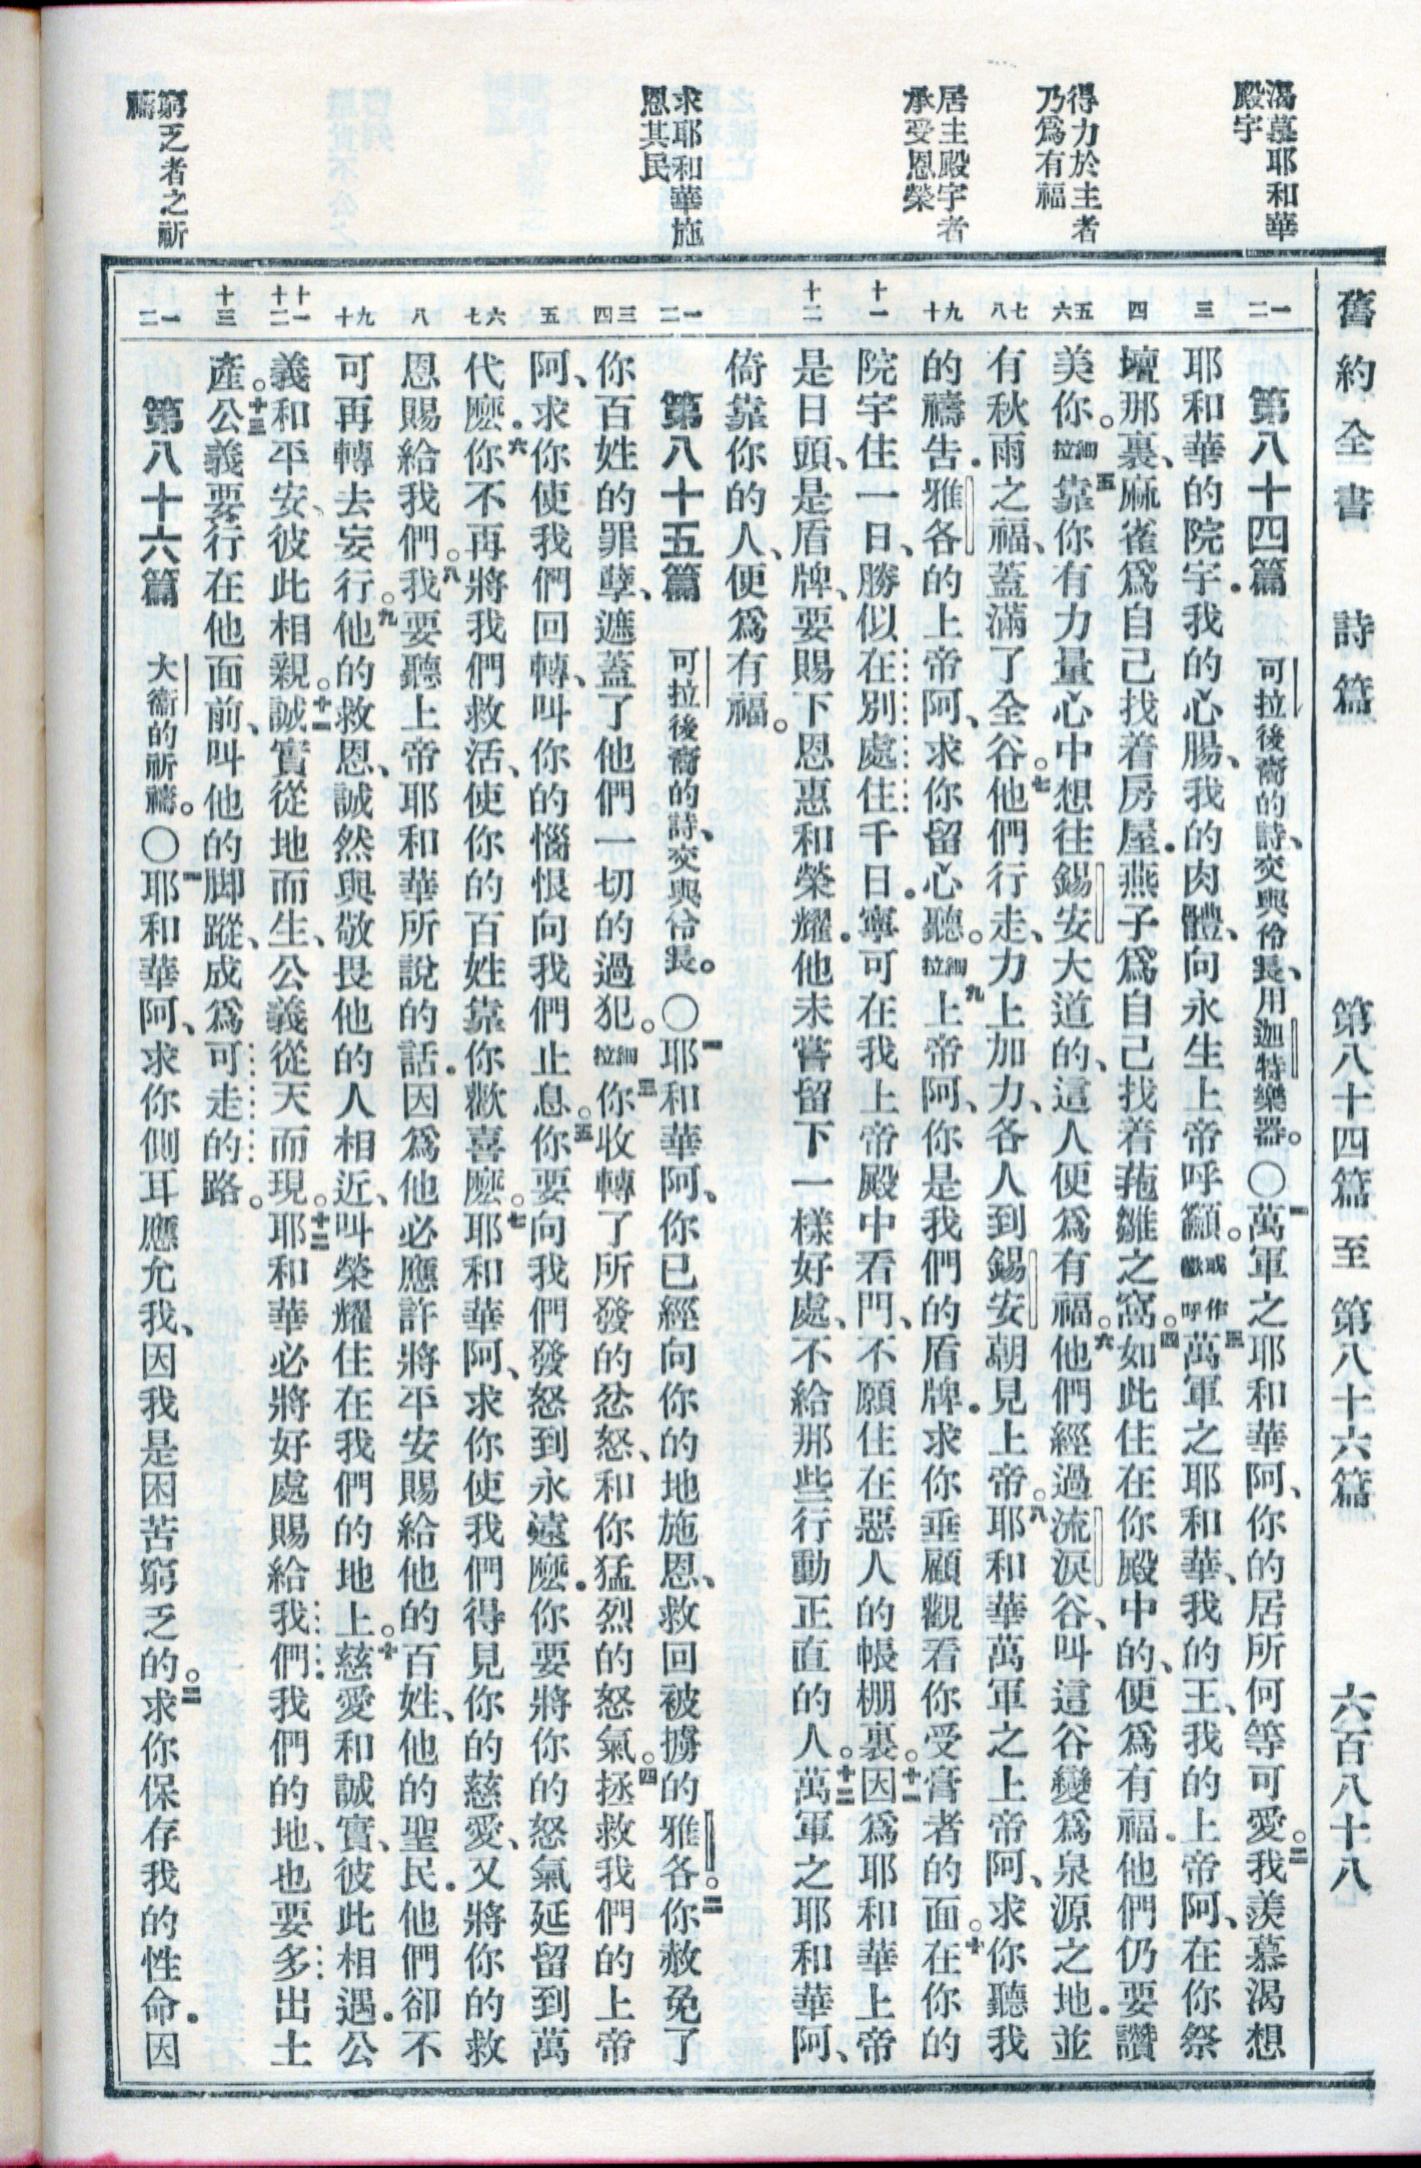 舊約全書 詩篇 第八十四篇至第八十六篇 六百八十八
渴慕耶和華
殿宇
得力於主者
乃爲有福
居主殿宇者
承受恩榮
求耶和華施
恩其民
窮乏者之祈
禱
一二 三 四 五六 七八 九十 十一 十二 一二 三四 五 六七 八 九十 十一十二 十三 一二
第八十四篇 可拉後裔的詩、交與伶長、用迦特樂器。〇一萬軍之耶和華阿、你的居所何等可愛。二我羨慕渴想
耶和華的院宇.我的心腸、我的肉體、向永生上帝呼籲。或作歡呼三萬軍之耶和華、我的王、我的上帝阿、在你祭
壇那裏、麻雀爲自己找着房屋.燕子爲自己找着菢雛之窩。四如此住在你殿中的、便爲有福.他們仍要讚
美你。細拉五靠你有力量心中想往錫安大道的、這人便爲有福。六他們經過流淚谷、叫這谷變爲泉源之地.並
有秋雨之福、蓋滿了全谷。七他們行走、力上加力、各人到錫安朝見上帝。八耶和華萬軍之上帝阿、求你聽我
的禱告.雅各的上帝阿、求你留心聽。細拉九上帝阿、你是我們的盾牌.求你垂顧觀看你受膏者的面。十在你的
院宇住一日、勝似在別處住千日.寧可在我上帝殿中看門、不願住在惡人的帳棚裏。十一因爲耶和華上帝
是日頭、是盾牌、要賜下恩惠和榮耀.他未嘗留下一樣好處、不給那些行動正直的人。十二萬軍之耶和華阿、
倚靠你的人、便爲有福。
第八十五篇 可拉後裔的詩、交與伶長。〇一耶和華阿、你已經向你的地施恩、救回被擄的雅各。二你赦免了
你百姓的罪孽、遮蓋了他們一切的過犯。細拉三你收轉了所發的忿怒、和你猛烈的怒氣。四拯救我們的上帝
阿、求你使我們回轉、叫你的惱恨向我們止息。五你要向我們發怒到永遠麽.你要將你的怒氣延留到萬
代麽.六你不再將我們救活、使你的百姓靠你歡喜麽。七耶和華阿、求你使我們得見你的慈愛、又將你的救
恩賜給我們。八我要聽上帝耶和華所說的話.因爲他必應許將平安賜給他的百姓、他的聖民.他們卻不
可再轉去妄行。九他的救恩、誠然與敬畏他的人相近、叫榮耀住在我們的地上。十慈愛和誠實、彼此相遇.公
義和平安、彼此相親。十一誠實從地而生、公義從天而現。十二耶和華必將好處賜給我們.我們的地、也要多出土
產。十三公義要行在他面前、叫他的脚蹤、成爲可走的路。
第八十六篇 大衞的祈禱。〇一耶和華阿、求你側耳應允我、因我是困苦窮乏的。二求你保存我的性命.因